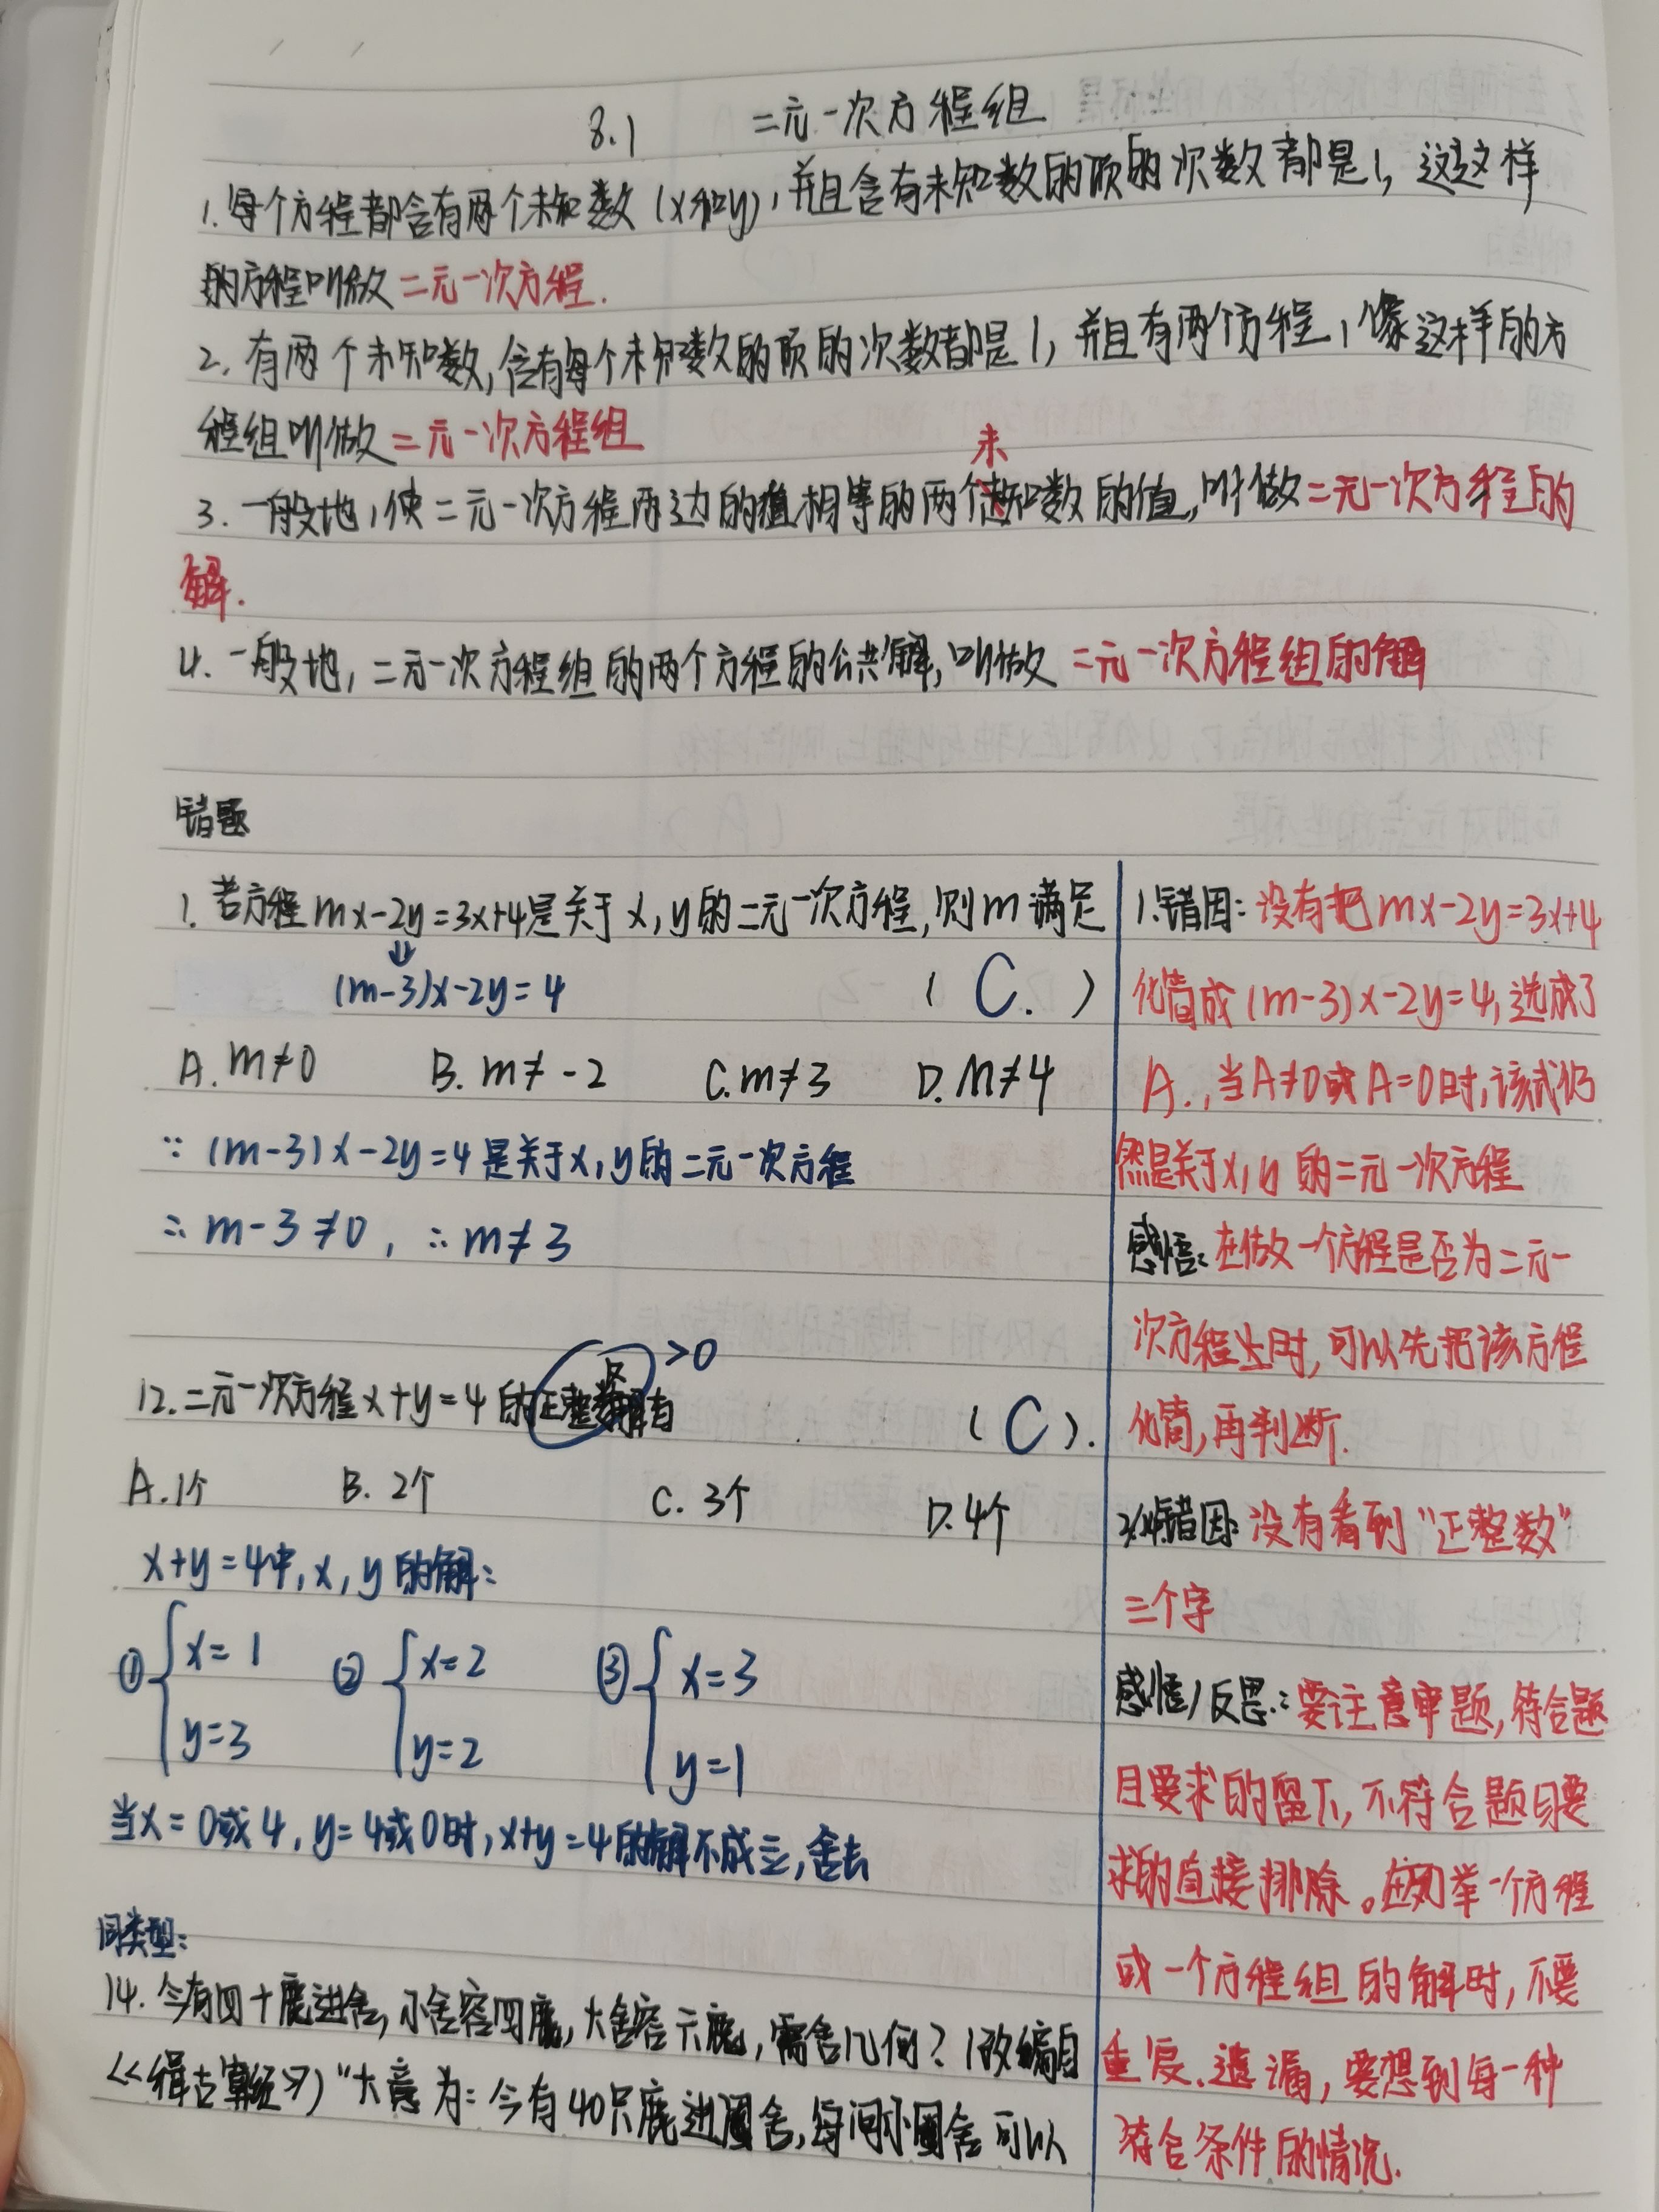 8.1 二元一次方程组
1. 每个方程都含有两个未知数(x和y),并且含有未知数的项的次数都是1,这这样
的方程叫做二元一次方程.
2. 有两个未知数,含有每个未知数的项的次数都是1,并且有两个方程,像这样的方
程组叫做二元一次方程组
未
3. 一般地,使二元一次方程两边的值相等的两个知数的值,叫做二元一次方程的
解.
4. 一般地,二元一次方程组的两个方程的公共解,叫做二元一次方程组的解
错题
1. 若方程mx-2y=3x+4是关于x,y的二元一次方程,则m满足
⇓
(m-3)x-2y=4 ( C. )
A. m≠0 B. m≠-2 C. m≠3 D. m≠4
∵ (m-3)x-2y=4是关于x,y的二元一次方程
∴ m-3≠0, ∴ m≠3
>0
12. 二元一次方程x+y=4的正整数解有 ( C ).
A. 1个 B. 2个 C. 3个 D. 4个
x+y=4中,x,y的解:
① {x=1 ② {x=2 ③ {x=3
y=3 y=2 y=1
当x=0或4,y=4或0时,x+y=4的解不成立,舍去
同类型:
14. 今有四十鹿进舍,小舍容四鹿,大舍容六鹿,需舍几何?(改编自
《缉古算经》)"大意为:今有40只鹿进圈舍,每间小圈舍可以
1.错因:没有把mx-2y=3x+4
化简成(m-3)x-2y=4,选成了
A.,当A≠0或A=0时,该式仍
然是关于x,y的二元一次方程
感悟:在做一个方程是否为二元一
次方程上时,可以先把该方程
化简,再判断.
错因:没有看到"正整数"
三个字
感悟/反思:要注意审题,符合题
目要求的留下,不符合题目要
求的直接排除。在列举一个方程
或一个方程组的解时,不要
重复、遗漏,要想到每一种
符合条件的情况.